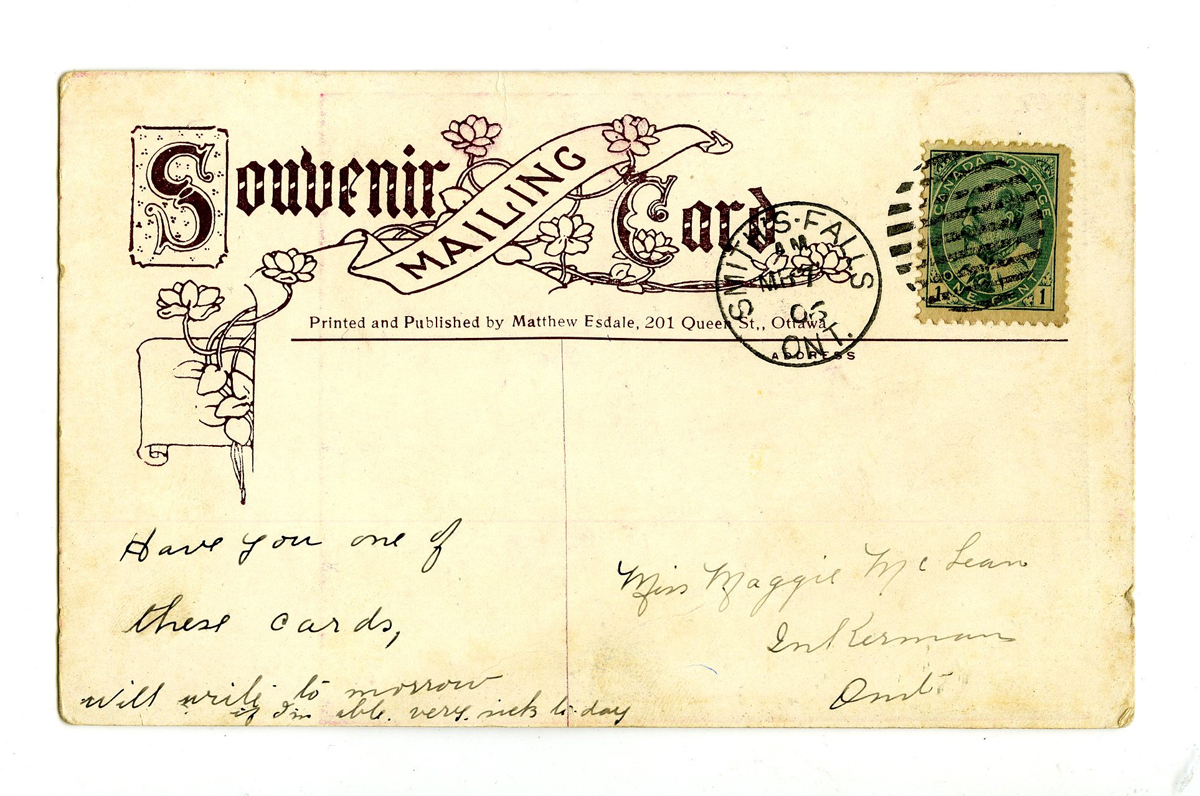 Souvenir MAILING Card
CANADA POSTAGE
ONE CENT
1 1
SMITH'S·FALLS
AM
7
06
ONT.
Printed and Published by Matthew Esdale, 201 Queen St,, Ottawa
ADDRESS
Have you one of
these cards,
will write to morrow
if I'm able. very. sick to-day
Miss Maggie McLean
Inkerman
Ont